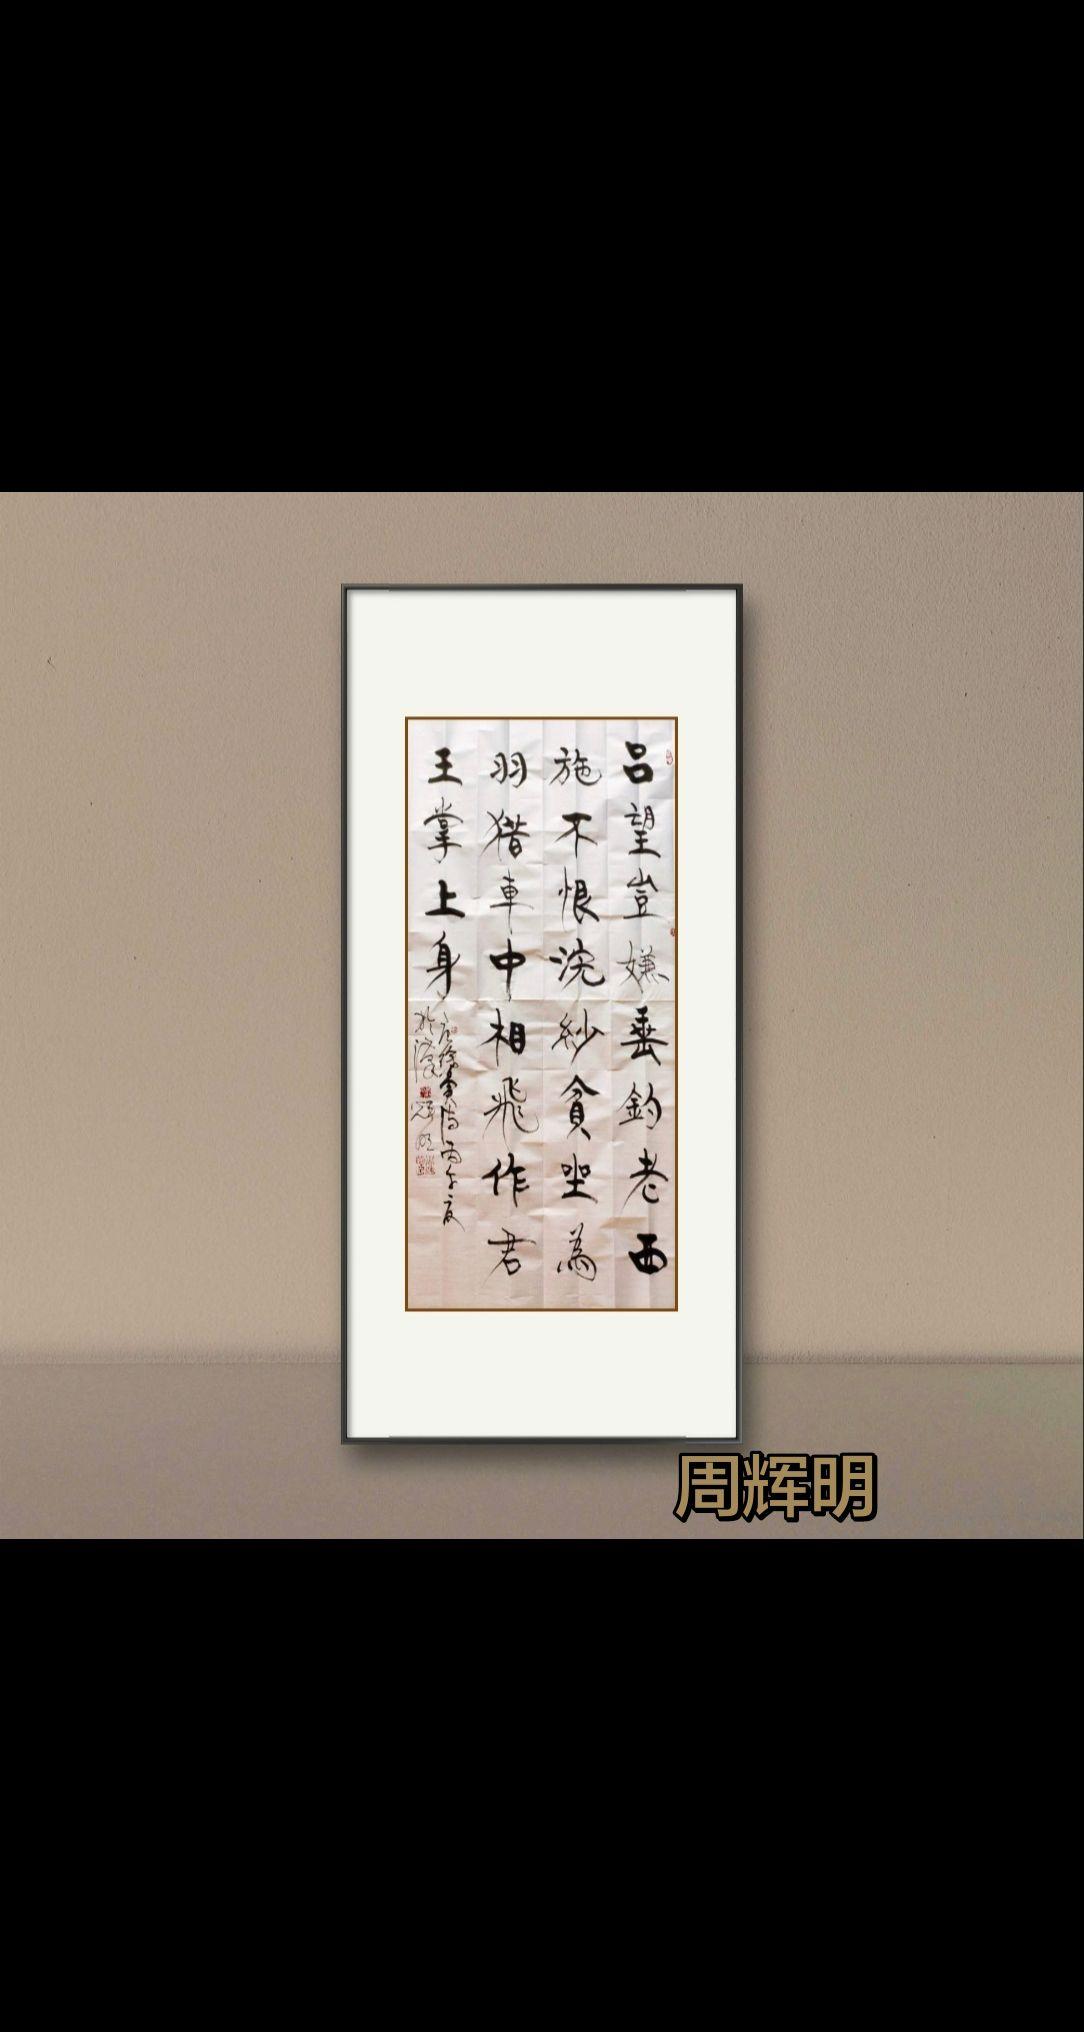 吕望豈嫌垂釣老西
施不恨浣紗貧坐為
羽猎車中相飛作君
王掌上身
周辉明